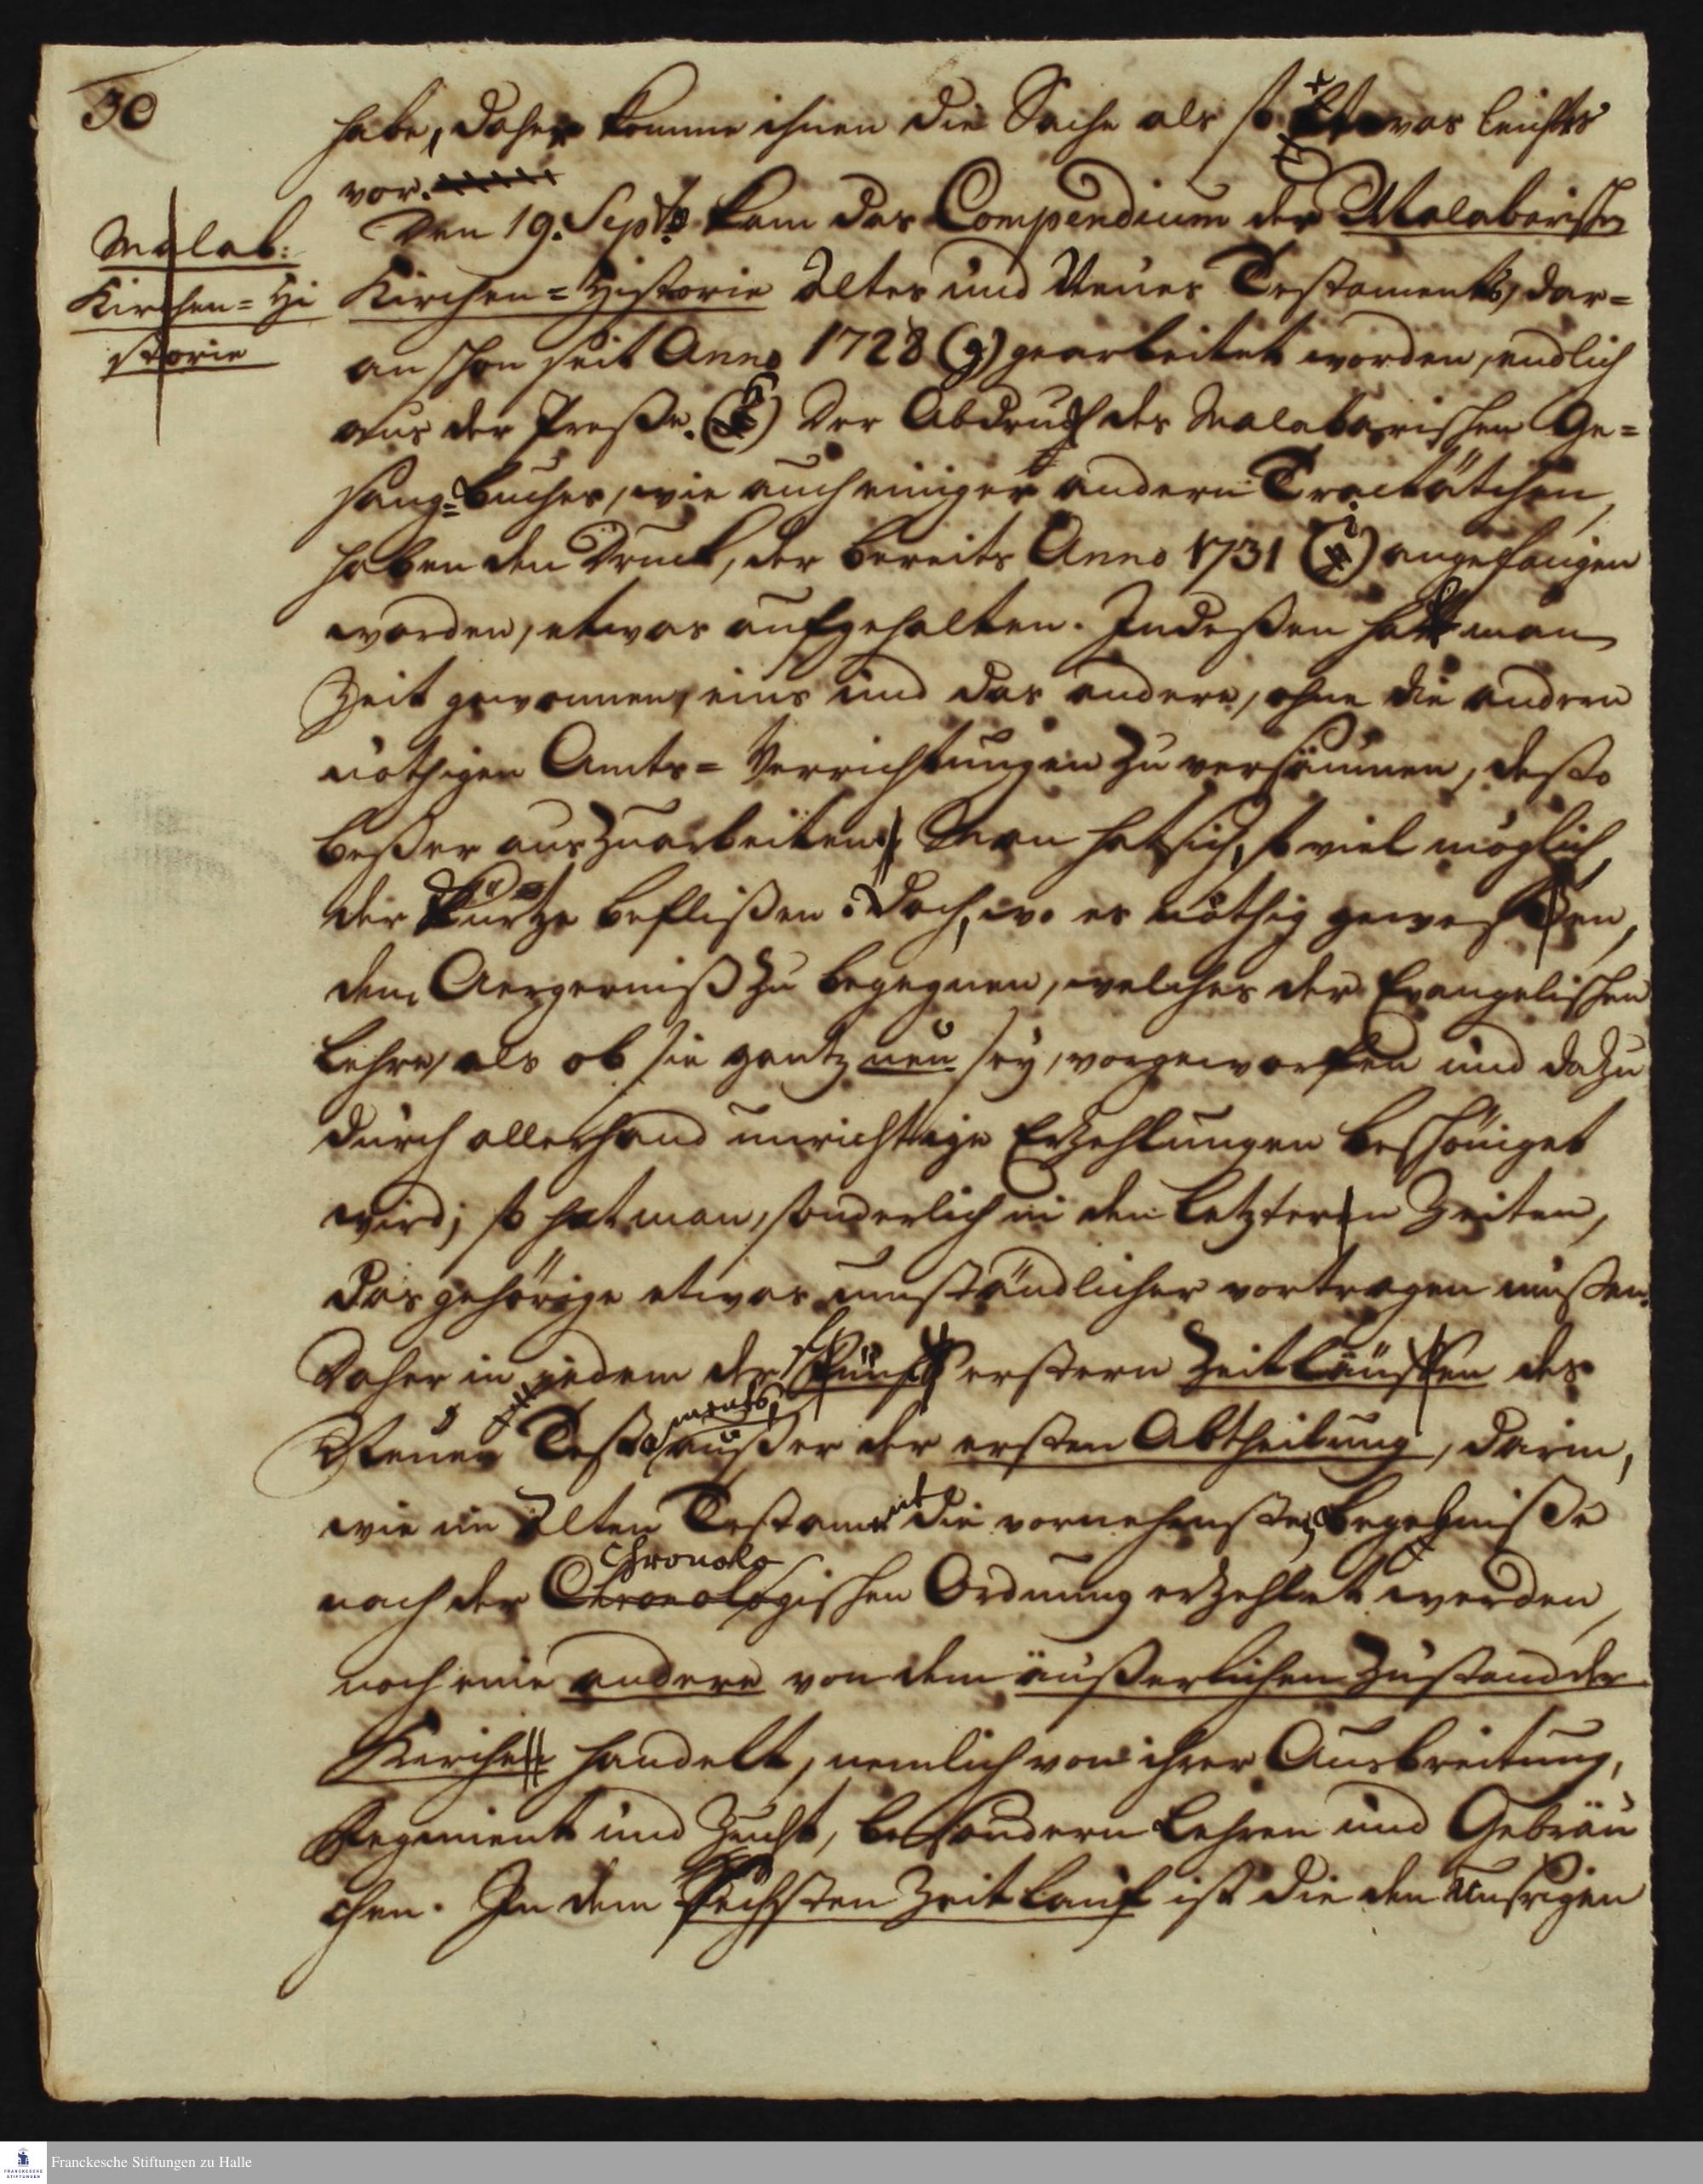 30
habe, daher komme ihnen die Sache als so etwas leichtes
vor.
Malab:
Kirchen=Hi
storie
Den 19. Septb. kam das Compendium der Malabarischen
Kirchen=Historie Altes und Neues Testaments, dar=
an schon seit Anno 1728 (g) gearbeitet worden, endlich
aus der Preße. (h) Der Abdruck des Malabarischen Ge=
sang=Buches, wie auch einiger andern Tractätchen,
haben den Druck, der bereits Anno 1731 (i) angefangen
worden, etwas aufgehalten. Indeßen hat man
Zeit gewonnen, eins und das andere, ohne die andren
nöthigen Amts=Verrichtungen zu versäumen, desto
beßer auszuarbeiten. Man hat sich, so viel möglich,
der Kürtze beflißen. Doch, wo es nöthig gewesen,
dem Aergerniß zu begegnen, welches der Evangelischen
Lehre, als ob sie gantz neu sey, vorgeworfen und dazu
durch allerhand unrichtige Erzehlungen beschöniget
wird; so hat man, sonderlich in den letztern Zeiten,
das gehörige etwas umständlicher vortragen müßen.
Daher in jedem der fünf erstern Zeitläuften des
Neuen Testaments, außer der ersten Abtheilung, darin,
wie im Alten Testament die vornehmsten Begebniße
nach der Chronologischen Ordnung erzehlet werden,
chronolo
noch eine andere von dem äußerlichen Zustand der
Kirche handelt, nemlich von ihrer Ausbreitung,
Regiment und Zucht, besondern Lehren und Gebräu
chen. In dem sechsten Zeitlauf ist die den Unsrigen
Franckesche Stiftungen zu Halle
FRANCKESCHE
STIFTUNGEN